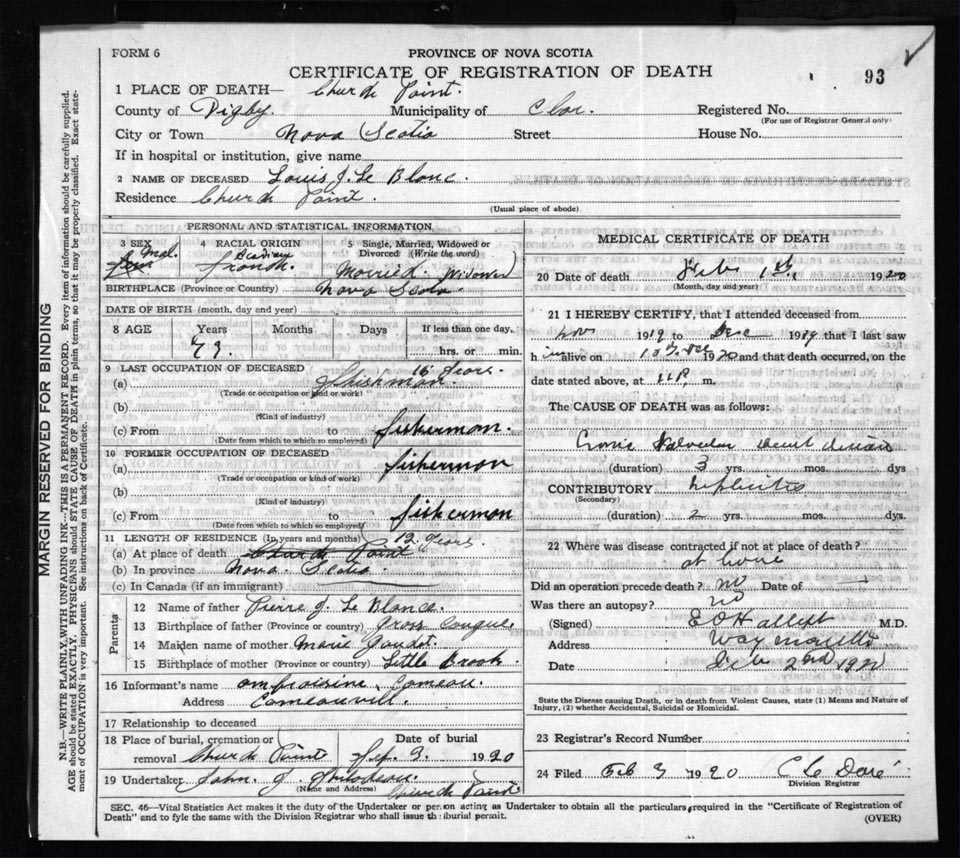 FORM 6
PROVINCE OF NOVA SCOTIA
CERTIFICATE OF REGISTRATION OF DEATH
93
1 PLACE OF DEATH— Church Point.
County of Digby. Municipality of Clar. Registered No.
(For use of Registrar General only)
City or Town Nova Scotia Street House No.
If in hospital or institution, give name
2 NAME OF DECEASED Louis J. Le Blanc.
Residence Church Point.
(Usual place of abode)
PERSONAL AND STATISTICAL INFORMATION
3 SEX Mal.
4 RACIAL ORIGIN
French.
5 Single, Married, Widowed or Divorced (Write the word)
Married. Widower
BIRTHPLACE (Province or Country) Nova Scotia.
DATE OF BIRTH (month, day and year)
8 AGE Years Months Days If less than one day,
73. hrs. or min.
9 LAST OCCUPATION OF DECEASED 16 Years.
(a)
(Trade or occupation or kind or work)
(b)
(Kind of industry)
(c) From to fisherman.
(Date from which to which so employed)
10 FORMER OCCUPATION OF DECEASED
(a) fisherman
(Trade or occupation or kind of work)
(b)
(Kind of industry)
(c) From to fisherman
(Date from which to which so employed)
11 LENGTH OF RESIDENCE (In years and months) 12 Years.
(a) At place of death Church Point
(b) In province Nova. Scotia.
(c) In Canada (if an immigrant)
Parents
12 Name of father Pierre J. Le Blance.
13 Birthplace of father (Province or country) Gross Coques
14 Maiden name of mother Marie Goudet.
15 Birthplace of mother (Province or country) Little Brook.
16 Informant's name Ambroisine Comeau.
Address Comeauvill.
17 Relationship to deceased
18 Place of burial, cremation or removal Church Point Date of burial 3. 1920
19 Undertaker John. J.
(Name and Address) Church Point
MEDICAL CERTIFICATE OF DEATH
20 Date of death Feb 1st, 1920
(Month, day and year)
21 I HEREBY CERTIFY, that I attended deceased from
Nov 1919 to Dec 1919 that I last saw
him alive on Dec 1920 and that death occurred, on the
date stated above, at 11 P m.
The CAUSE OF DEATH was as follows:
Valvular heart disease
(duration) 3 yrs. mos. dys
CONTRIBUTORY Nephritis
(Secondary)
(duration) 2 yrs. mos. dys.
22 Where was disease contracted if not at place of death?
at home
Did an operation precede death? no Date of
Was there an autopsy? no
(Signed) M.D.
Address
Date Feb 2nd 1920
State the Disease causing Death, or in death from Violent Causes, state (1) Means and Nature of
Injury, (2) whether Accidental, Suicidal or Homicidal.
23 Registrar's Record Number
24 Filed Feb 3 1920
Division Registrar
SEC. 46—Vital Statistics Act makes it the duty of the Undertaker or person acting as Undertaker to obtain all the particulars required in the "Certificate of Registration of
Death" and to fyle the same with the Division Registrar who shall issue the burial permit. (OVER)
MARGIN RESERVED FOR BINDING
N.B.—WRITE PLAINLY, WITH UNFADING INK—THIS IS A PERMANENT RECORD. Every item of information should be carefully supplied.
AGE should be stated EXACTLY. PHYSICIANS should STATE CAUSE OF DEATH in plain terms, so that it may be properly classified. Exact state-
ment of OCCUPATION is very important. See instructions on back of Certificate.